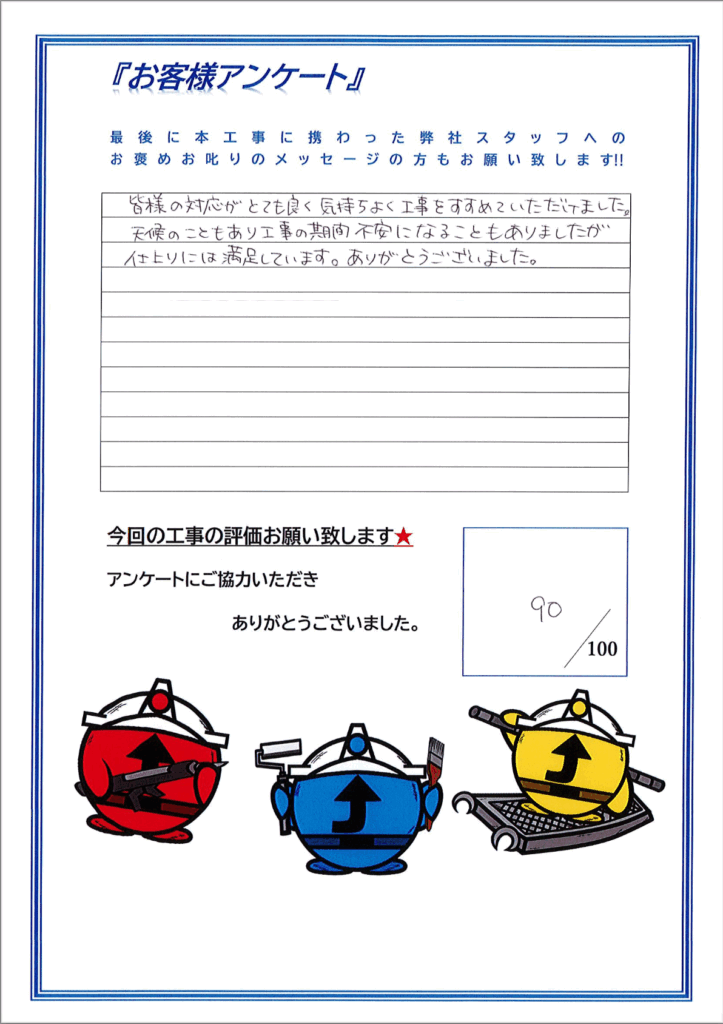 『お客様アンケート』
最後に本工事に携わった弊社スタッフへの
お褒めお叱りのメッセージの方もお願い致します!!
皆様の対応がとても良く気持ちよく工事をすすめていただけました。
天候のこともあり工事の期間不安になることもありましたが
仕上りには満足しています。ありがとうございました。
今回の工事の評価お願い致します★
アンケートにご協力いただき
ありがとうございました。
90/100